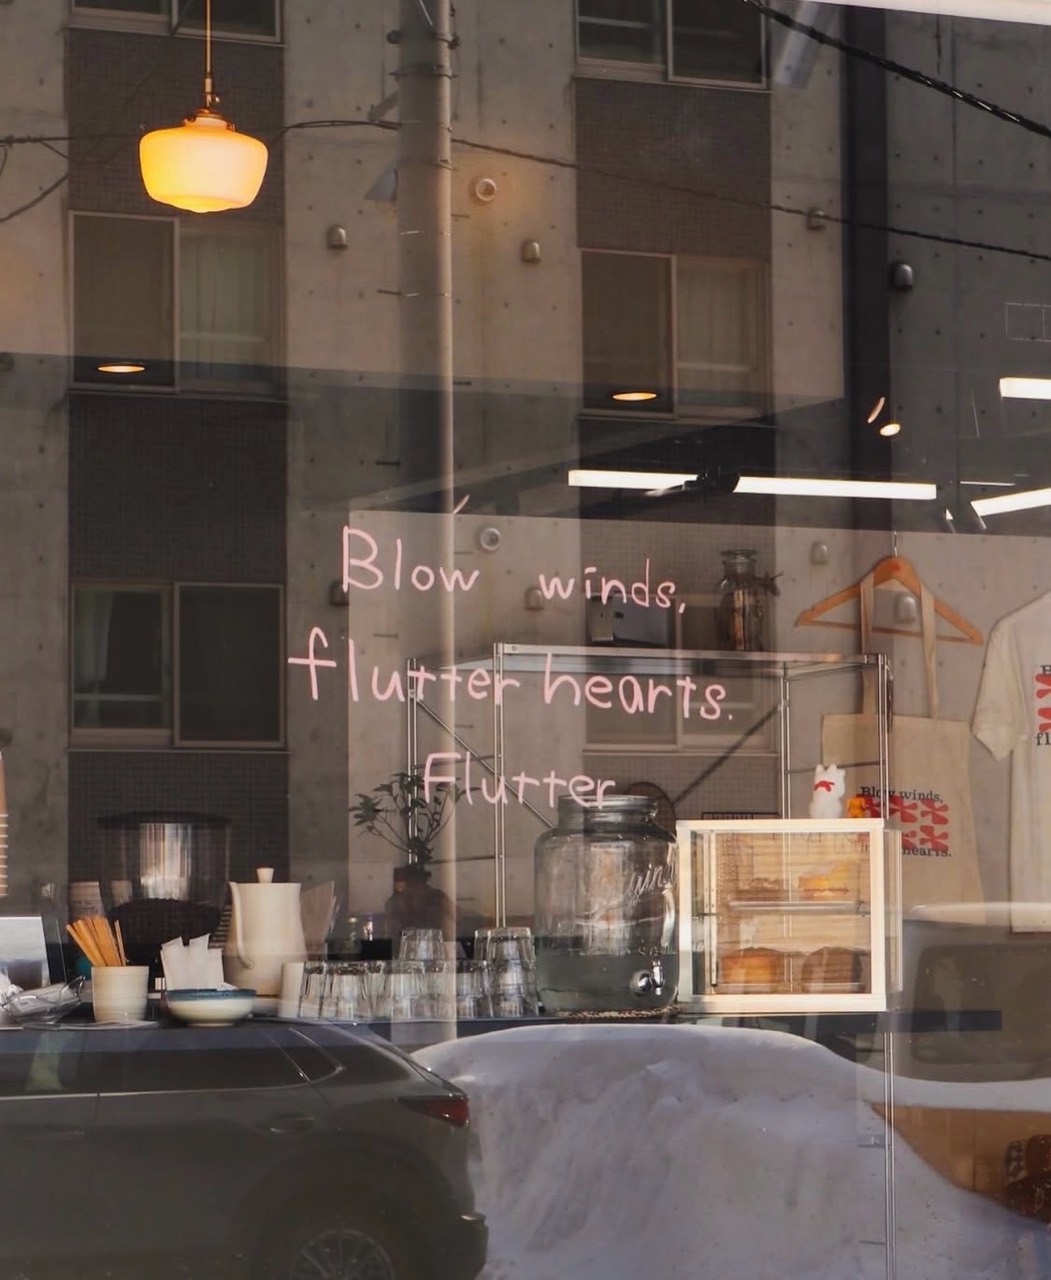 Blow winds,
flutter hearts.
Flutter
Blow winds,
hearts.